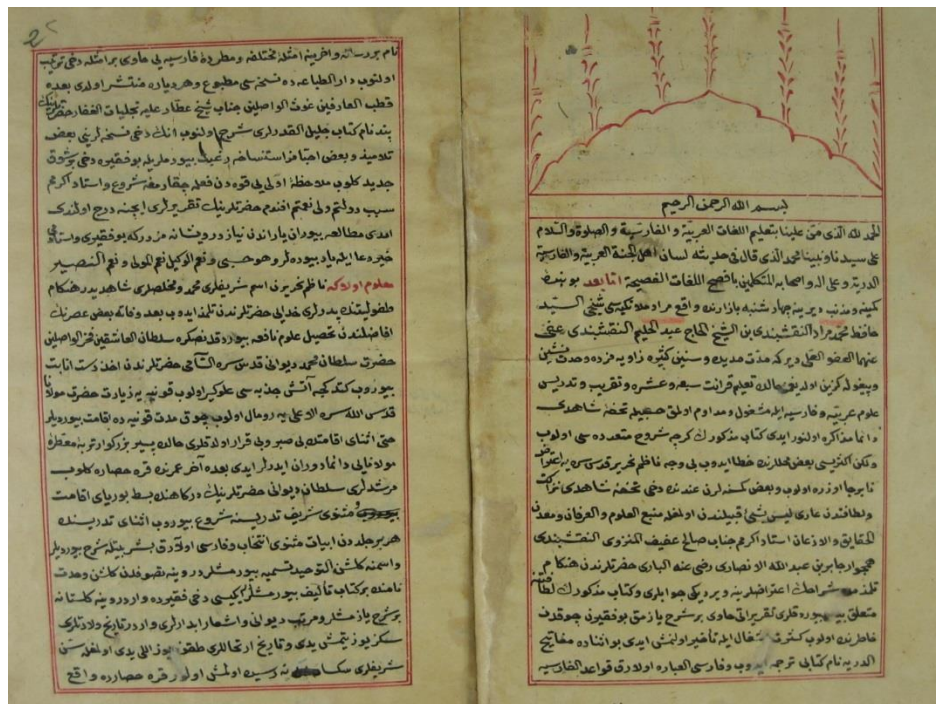 بسم الله الرحمن الرحيم
الحمد لله الذى منّ علينا بتعليم اللغات العربية و الفارسية و الصلوة و السلام
على سيدنا و نبينا محمد الذى قال فى حديثه لسان اهل الجنة العربية و الفارسية
الدرية و على اله و اصحابه المتكلمين بافصح اللغات الفصيحة اما بعد بو بنده
كمينه و مذنب ديرينه چهارشنبه بازارنده واقع مراد ملا تكيه سى شيخى السيد
حافظ محمد مراد النقشبندى بن الشيخ الحاج عبد الحليم النقشبندى عفى
عنهما العفو العلى ديركه مدت مديده و سنين كثيره زاويه مزده وحدت نشين
و بيغوله كزين اولديغى حالده تعليم قرائت سبعه و عشره و تقريب و تدريس
علوم عربيه و فارسيه ايله مشغول و مداوم اولمق حسبيله تحفۀ شاهدى
دائما مذاكره اولنور ايدى كتاب مذكورك كرچه شروح متعدده سى اولوب
ولكن اكثريسى بعض محللرنده خطا ايدوب بى وجه ناظم نحرير قدس سره يه اعتراض
نابرجا اوزره اولوب و بعض كسنه لرك عندنده دخى تحفۀ شاهدى نزاكت
و لطافتدن عارى ليس بشئ قبيلندن اولمغله منبع العلوم و العرفان و معدن
الحقايق و الاذعان استاد اكرمم جناب صالح عفيف المنزوى النقشبندى
همجوار جابر بن عبد الله الانصارى رضى عنه البارى حضرتلرندن هنكام
تلمذمده شراحك اعتراضلرينه ويرديكى جوابلرى و كتاب مذكورك لطافتنه
متعلق بيورده قلرى تقريراتى حاوى بر شرح يازمق بو فقيرك چوقدن
خاطرنده اولوب كثرت اشغال ايله تأخير اولنمش ايدى بو اثناده مفاتيح
الدريه نام كتابى ترجمه ايدوب و فارسى العباره اولارق قواعد الفارسيه
نام بر رساله و اخرينه امثلۀ مختلفه و مطردۀ فارسيه يى حاوى بر امثله دخى ترتيب
اولنوب دار الطباعه ده نسخه سى مطبوع و هر دياره منتشر اولدى بعده
قطب العارفين غوث الواصلين جناب شيخ عطار عليه تجليات الغفار حضرتلرينك
پند نام كتاب جليل القدرلرى شرح اولنوب انك دخى نسخه لرينى بعض
تلاميذ و بعض احبا استنساخه رغبت بيوردملريله بو فقيره دخى بر شوق
جديد كلوب ملاحظۀ اولى يى قوه دن فعله چيقارمغه شروع و استاد اكرمم
سبب دولتم ولى نعمتم افندم حضرتلرينك تقريرلرى ايچنه درج اولندى
امدى مطالعه بيوران ياراندن نياز درويشانه مزدركه بو فقيرى و استادمى
خير دعا ايله ياد بيوره لر و هو حسبى و نعم الوكيل نعم المولى و نعم النصير
معلوم اولاكه ناظم نحريرك اسم شريفلرى محمد و مخلصلرى شاهديدر هنكام
طفوليتنده پدرلرى خدايى حضرتلرندن تلمذ ايدوب بعد وفاته بعض عصرنك
افاضلندن تحصيل علوم نافعه بيوردقدنصكره سلطان العاشقين فخر الواصلين
حضرت سلطان محمد ديوانى قدس سره السامى حضرتلرندن اخذ دست انابت
بيوروب كتدكجه آتش جذبه سى علوكير اولوب قونيه يه زيارت حضرت مولانا
قدس الله سره الاعلى يه رومال اولوب چوق مدت قونيه ده اقامت بيورديلر
حتى اثناى اقامتده بى صبر و بى قرار اولدقلرى حالده پير بزركوار تربۀ معطرۀ
مولانايى دائما دوران ايدرلر ايدى بعده آخر عمرنده قره حصاره كلوب
مرشدلرى سلطان ديوانى حضرتلرينك دركاهنده بسط بورياى اقامت
و مثنوى شريف تدريسنه شروع بيوروب اثناى تدريسنده
هر بر جلددن ابيات مثنوى انتخاب و فارسى اولارق بشر بيتله شرح بيورديلر
و اسمنه كلشن التوحيد تسميه بيورمشلردر ينه تصوفدن كلشن وحدت
نامنده بر كتاب تأليف بيورمشلر ايكيسى دخى فقيرده واردر ينه كلستانه
بر شرح يازمشلر و مرتب ديوانى و اشعار ابدارلرى واردر تاريخ ولادتلرى
سكز يوز يتمش يدى و تاريخ ارتحاللرى طقوز يوز اللى يدى اولمغله سن
شريفلرى سكسانه رسيده اولمش اولور قره حصارده واقع